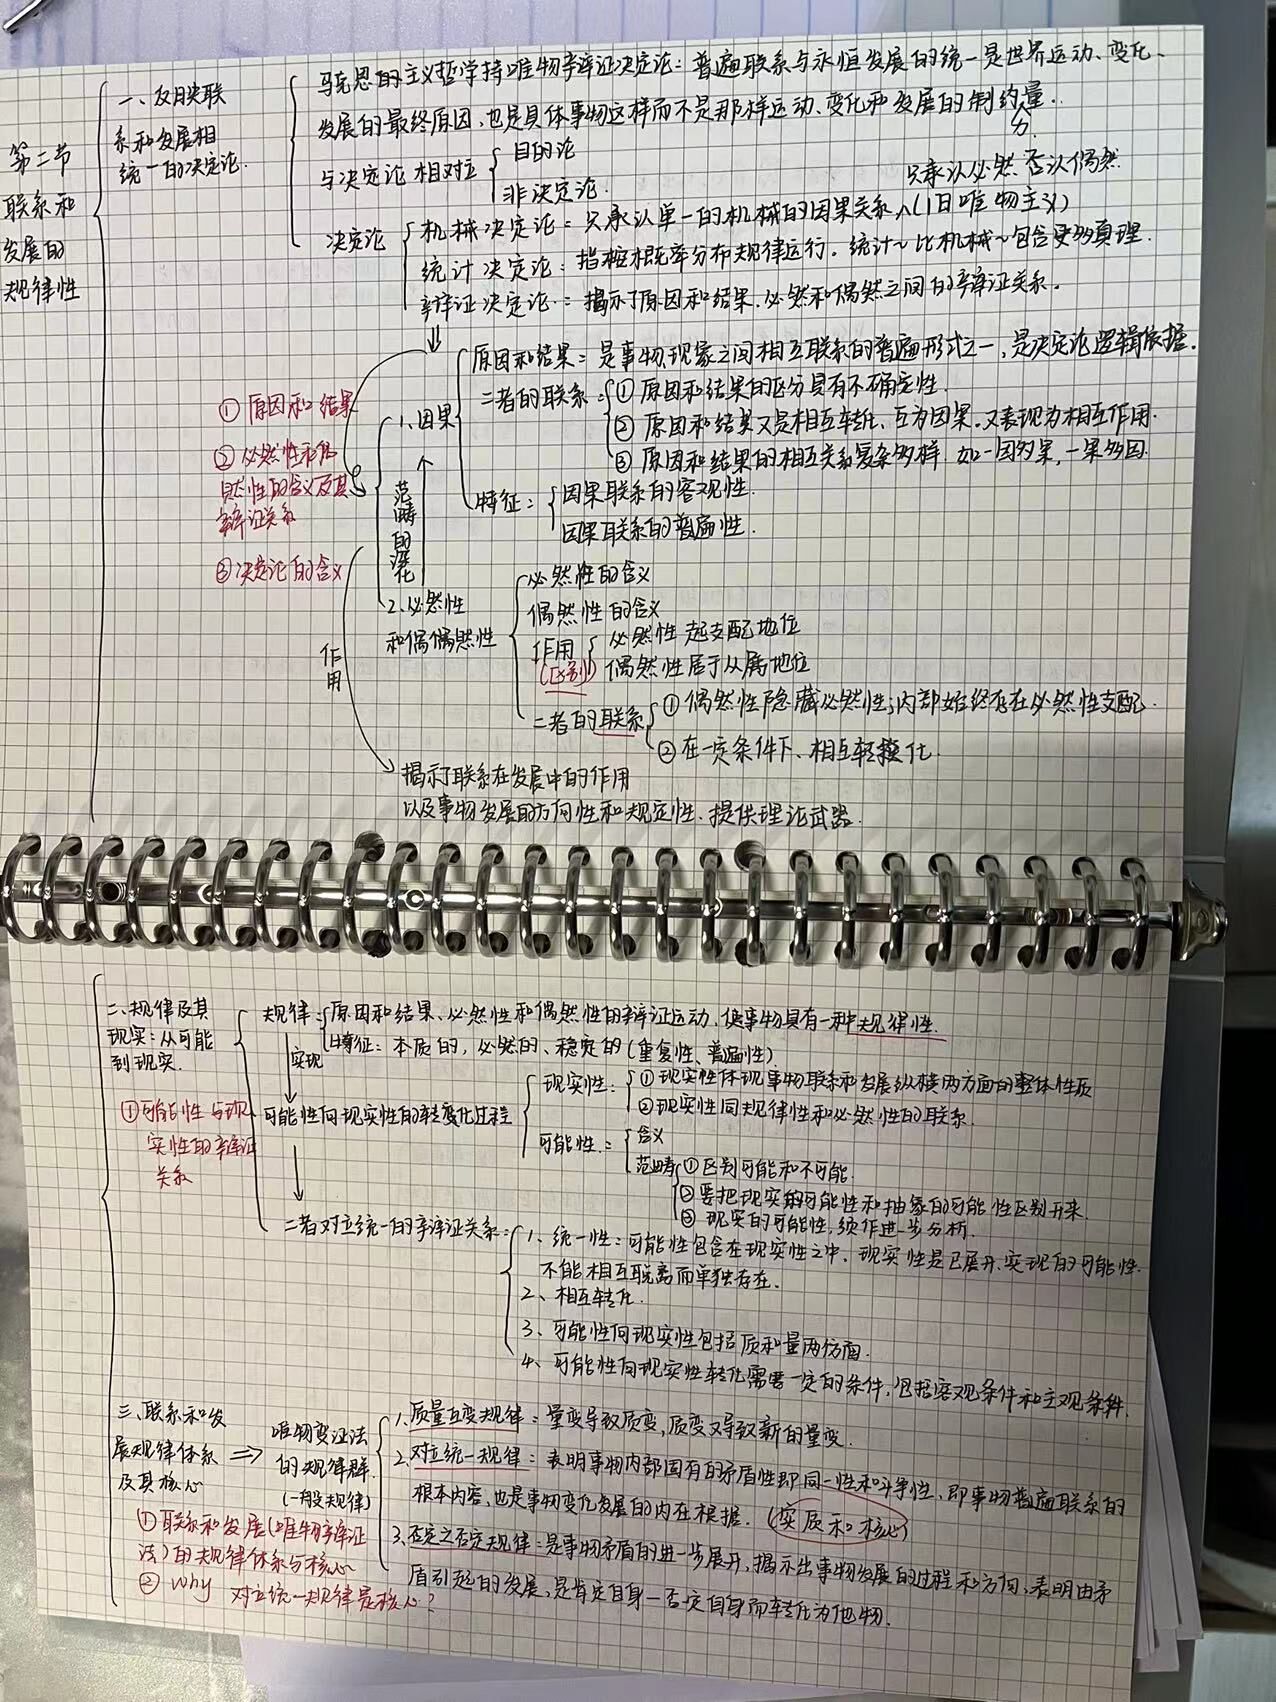 第二节
联系和
发展的
规律性
一、反映联
系和发展相
统一的决定论.
马克思的主义哲学持唯物辩证决定论：普遍联系与永恒发展的统一是世界运动、变化、
发展的最终原因,也是具体事物这样而不是那样运动、变化和发展的制约量.
力.
与决定论相对立
目的论
非决定论.
只承认必然否认偶然
决定论
机械决定论：只承认单一的机械的因果关系,(旧唯物主义)
统计决定论：指按概率分布规律运行.统计~比机械~包含更多真理.
辩证决定论：揭示了原因和结果.必然和偶然之间的辩证关系.
① 原因和结果
② 必然性和偶
然性的含义及其
辩证关系
③决定论的含义
1.因果
原因和结果：是事物,现象之间相互联系的普遍形式之一,是决定论逻辑依据.
二者的联系：① 原因和结果的区分具有不确定性.
② 原因和结果又是相互转化、互为因果.又表现为相互作用.
③ 原因和结果的相互关系复杂多样.如一因多果,一果多因.
特征：
因果联系的客观性.
因果联系的普遍性.
范畴的深化
2.必然性
和偶偶然性
必然性的含义
偶然性的含义
作用
(区别)
必然性起支配地位
偶然性居于从属地位
二者的联系
① 偶然性隐藏必然性;内部始终存在必然性支配.
② 在一定条件下、相互转换化.
作用
揭示了联系在发展中的作用
以及事物发展的方向性和规定性.提供理论武器.
二、规律及其
现实：从可能
到现实.
①可能性与现
实性的辩证
关系
规律：原因和结果、必然性和偶然性的辩证运动、使事物具有一种规律性.
特征：本质的,必然的、稳定的(重复性、普遍性)
实现
可能性向现实性的转变化过程
现实性：① 现实性体现事物联系和发展纵横两方面的整体性质
②现实性同规律性和必然性的联系.
可能性：
含义
范畴
① 区别可能和不可能.
② 要把现实的可能性和抽象的可能性区别开来.
③ 现实的可能性,须作进一步分析.
二者对立统一的辩证关系：
1、统一性：可能性包含在现实性之中、现实性是已展开、实现的可能性.
不能相互脱离而单独存在.
2、相互转化.
3、可能性向现实性包括质和量两仿面.
4、可能性向现实性转化需要一定的条件,包括客观条件和主观条件.
三、联系和发
展规律体系
及其核心
唯物变证法
的规律群.
(一般规律)
1.质量互变规律：量变导致质变,质变又导致新的量变.
2.对立统一规律：表明事物内部固有的矛盾性即同一性和斗争性、即事物普遍联系的
根本内容,也是事物变化发展的内在根据.(实质和核心)
3.否定之否定规律：是事物矛盾的进一步展开,揭示出事物发展的过程和方向、表明由矛
盾引起的发展,是肯定自身—否定自身而转化为他物.
① 联系和发展(唯物辩证
法)的规律体系与核心
② why 对立统一规律是核心?